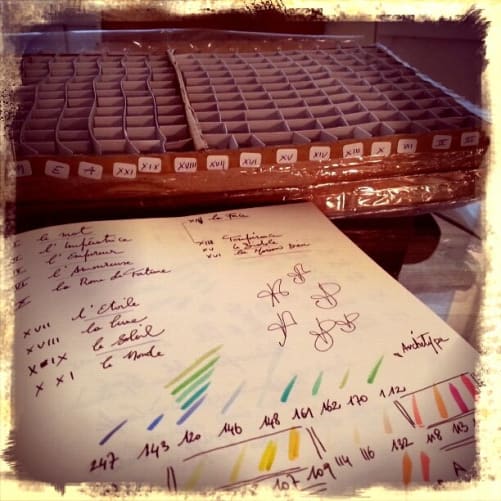 M E A XXI XIX XVIII XVII XVI XV XIV XIII X VII III II
I le mat
l'Impératrice
l'Empereur
VI l'Amoureuse
X la Roue de Fortune
XVII l'Etoile
XVIII la lune
XIX le Soleil
XXI le Monde
la Face
XIIII Tempérance
XV le Diable
XVI la Maison Dieu
Archétype
247 143 120 146 148 161 162 170 112
107 109 114 116 132 118 113
A